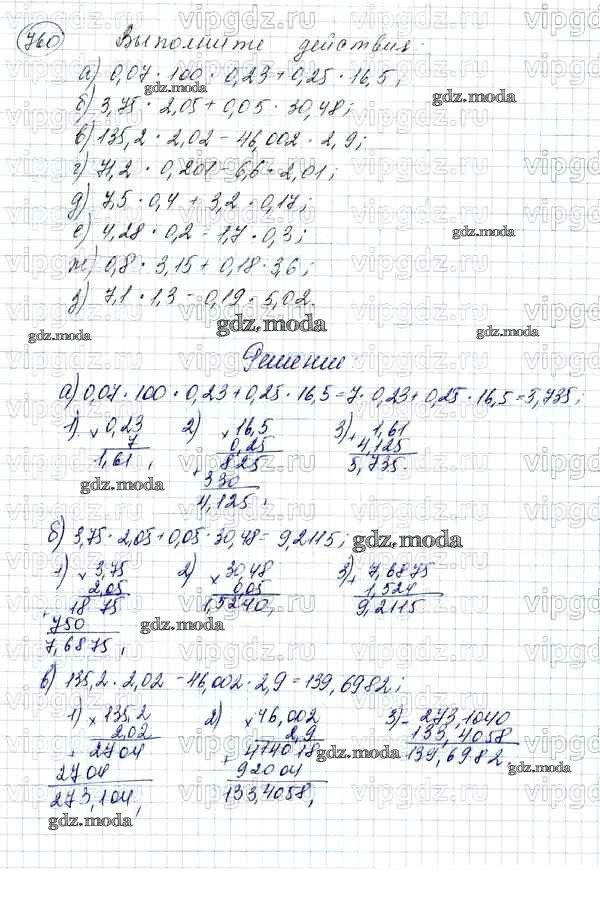 760 Выполните действия:
а) 0,07 · 100 · 0,23 + 0,25 · 16,5;
gdz.moda
б) 3,75 · 2,05 + 0,05 · 30,48;
в) 135,2 · 2,02 - 46,002 · 2,9;
г) 71,2 · 0,201 - 6,6 · 2,01;
д) 7,5 · 0,4 + 3,2 · 0,17;
е) 4,28 · 0,2 - 1,7 · 0,3;
gdz.moda
ж) 0,8 · 3,15 + 0,18 · 3,6;
з) 7,1 · 1,3 - 0,19 · 5,02.
gdz.moda gdz.moda gdz.moda
Решение:
а) 0,07 · 100 · 0,23 + 0,25 · 16,5 = 7 · 0,23 + 0,25 · 16,5 = 5,735;
1) × 0,23 2) × 16,5 3) + 1,61
7 0,25 4,125
1,61, + 825 5,735.
gdz.moda 330 gdz.moda
4,125,
б) 3,75 · 2,05 + 0,05 · 30,48 = 9,2115; gdz.moda
1) × 3,75 2) × 30,48 3) + 7,6875
2,05 0,05 1,524
+ 1875 1,5240, 9,2115
750 gdz.moda gdz.moda
7,6875,
в) 135,2 · 2,02 - 46,002 · 2,9 = 139,6982;
1) × 135,2 2) × 46,002 3) - 273,1040
2,02 2,9 133,4058
+ 2704 + 414018 139,6982,
gdz.moda gdz.moda
2704 92004
273,104, 133,4058,
gdz.moda gdz.moda